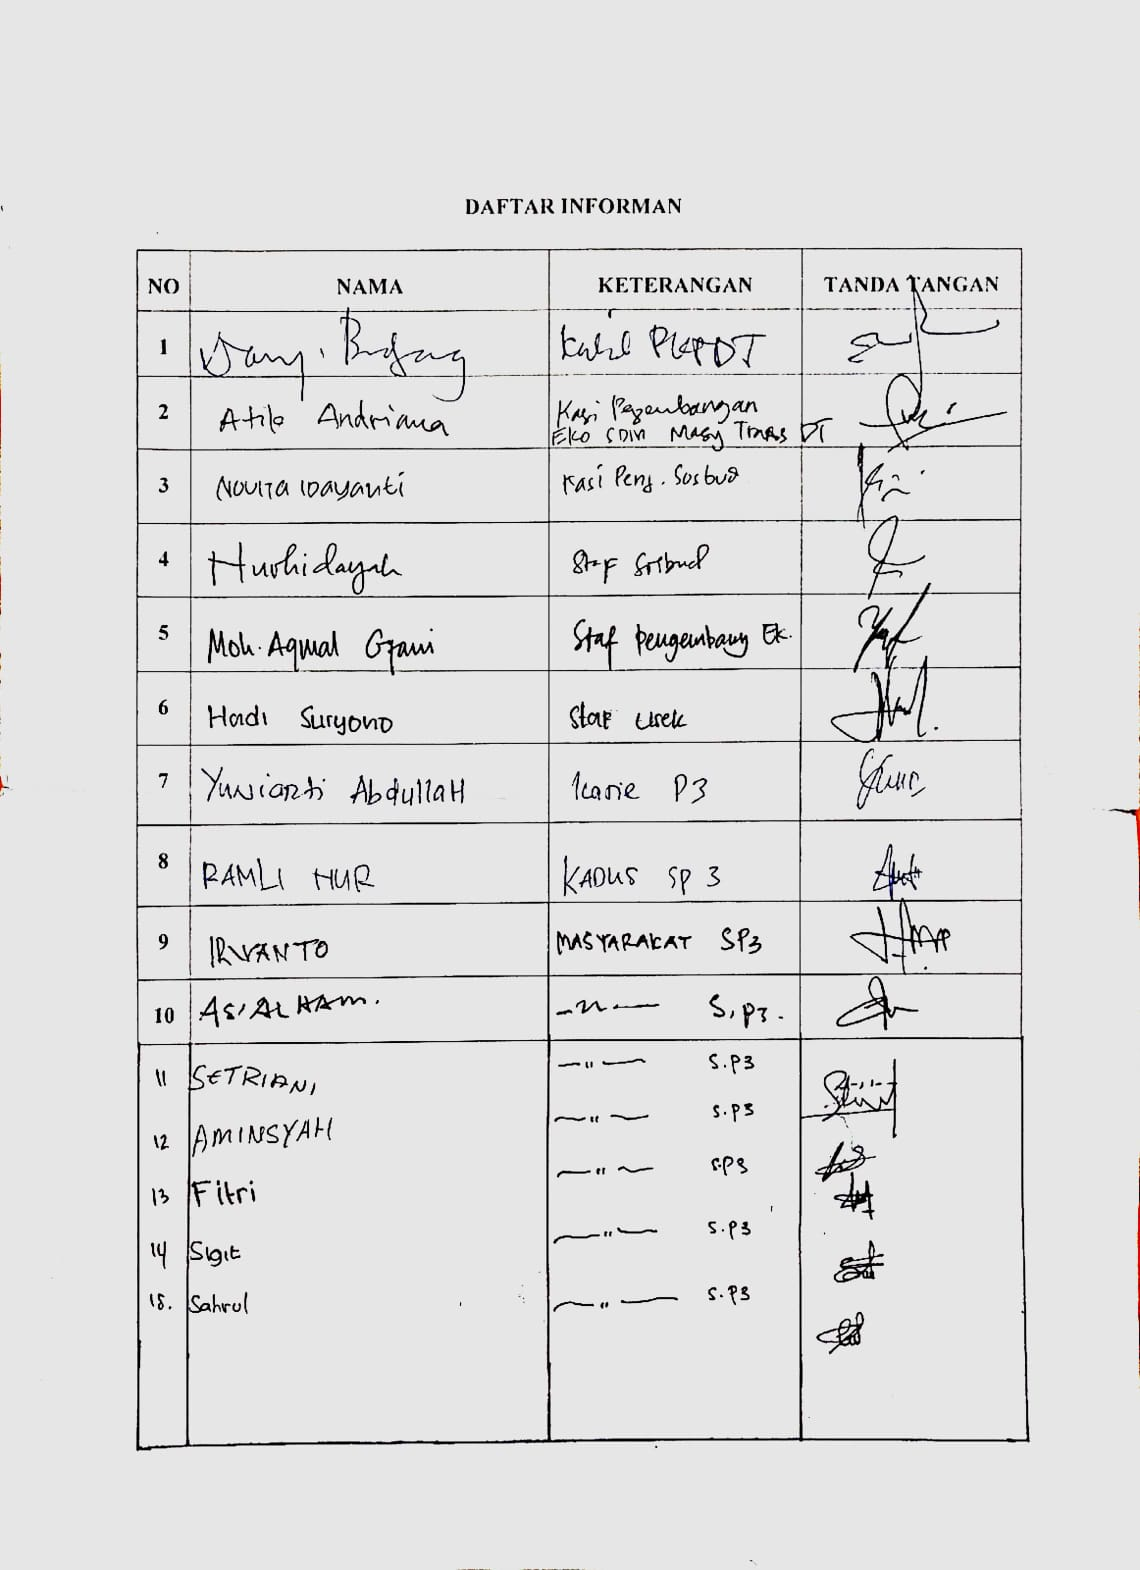 DAFTAR INFORMAN
NO NAMA KETERANGAN TANDA TANGAN
1 PKPDT
2 Atilo Andriana Kasi Pegembangan
Eko SDM Masy Trans DT
3 NOVITA IDAYANTI Kasi Peng. Sosbud
4 Nurhidayah Staf Sosbud
5 Moh. Aqmal Staf Pengembang Ek.
6 Hadi Suryono Staf
7 Yuvianti AbdullaH P3
8 RAMLI NUR KADUS SP 3
9 IRVANTO MASYARAKAT SP3
10 ASIALHAM. —〃— S.P3.
11 SETRIANI —〃— S.P3
12 AMINSYAH —〃— S.P3
13 Fitri —〃— S.P3
14 Sigit —〃— S.P3
15. Sahrul —〃— S.P3